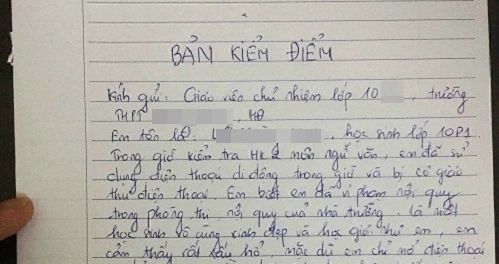 BẢN KIỂM ĐIỂM
Kính gửi: Giáo viên chủ nhiệm lớp 10 , trường
THPT , HĐ
Em tên là: L , học sinh lớp 10P1.
Trong giờ kiểm tra HK2 môn ngữ văn, em đã sử
dụng điện thoại di động trong giờ và bị cô giáo
thu điện thoại. Em biết em đã vi phạm nội quy
trong phòng thi, nội quy của nhà trường. Là một
học sinh vô cùng xinh đẹp và học giỏi như em, em
cảm thấy rất xấu hổ, mặc dù em chỉ mở điện thoại